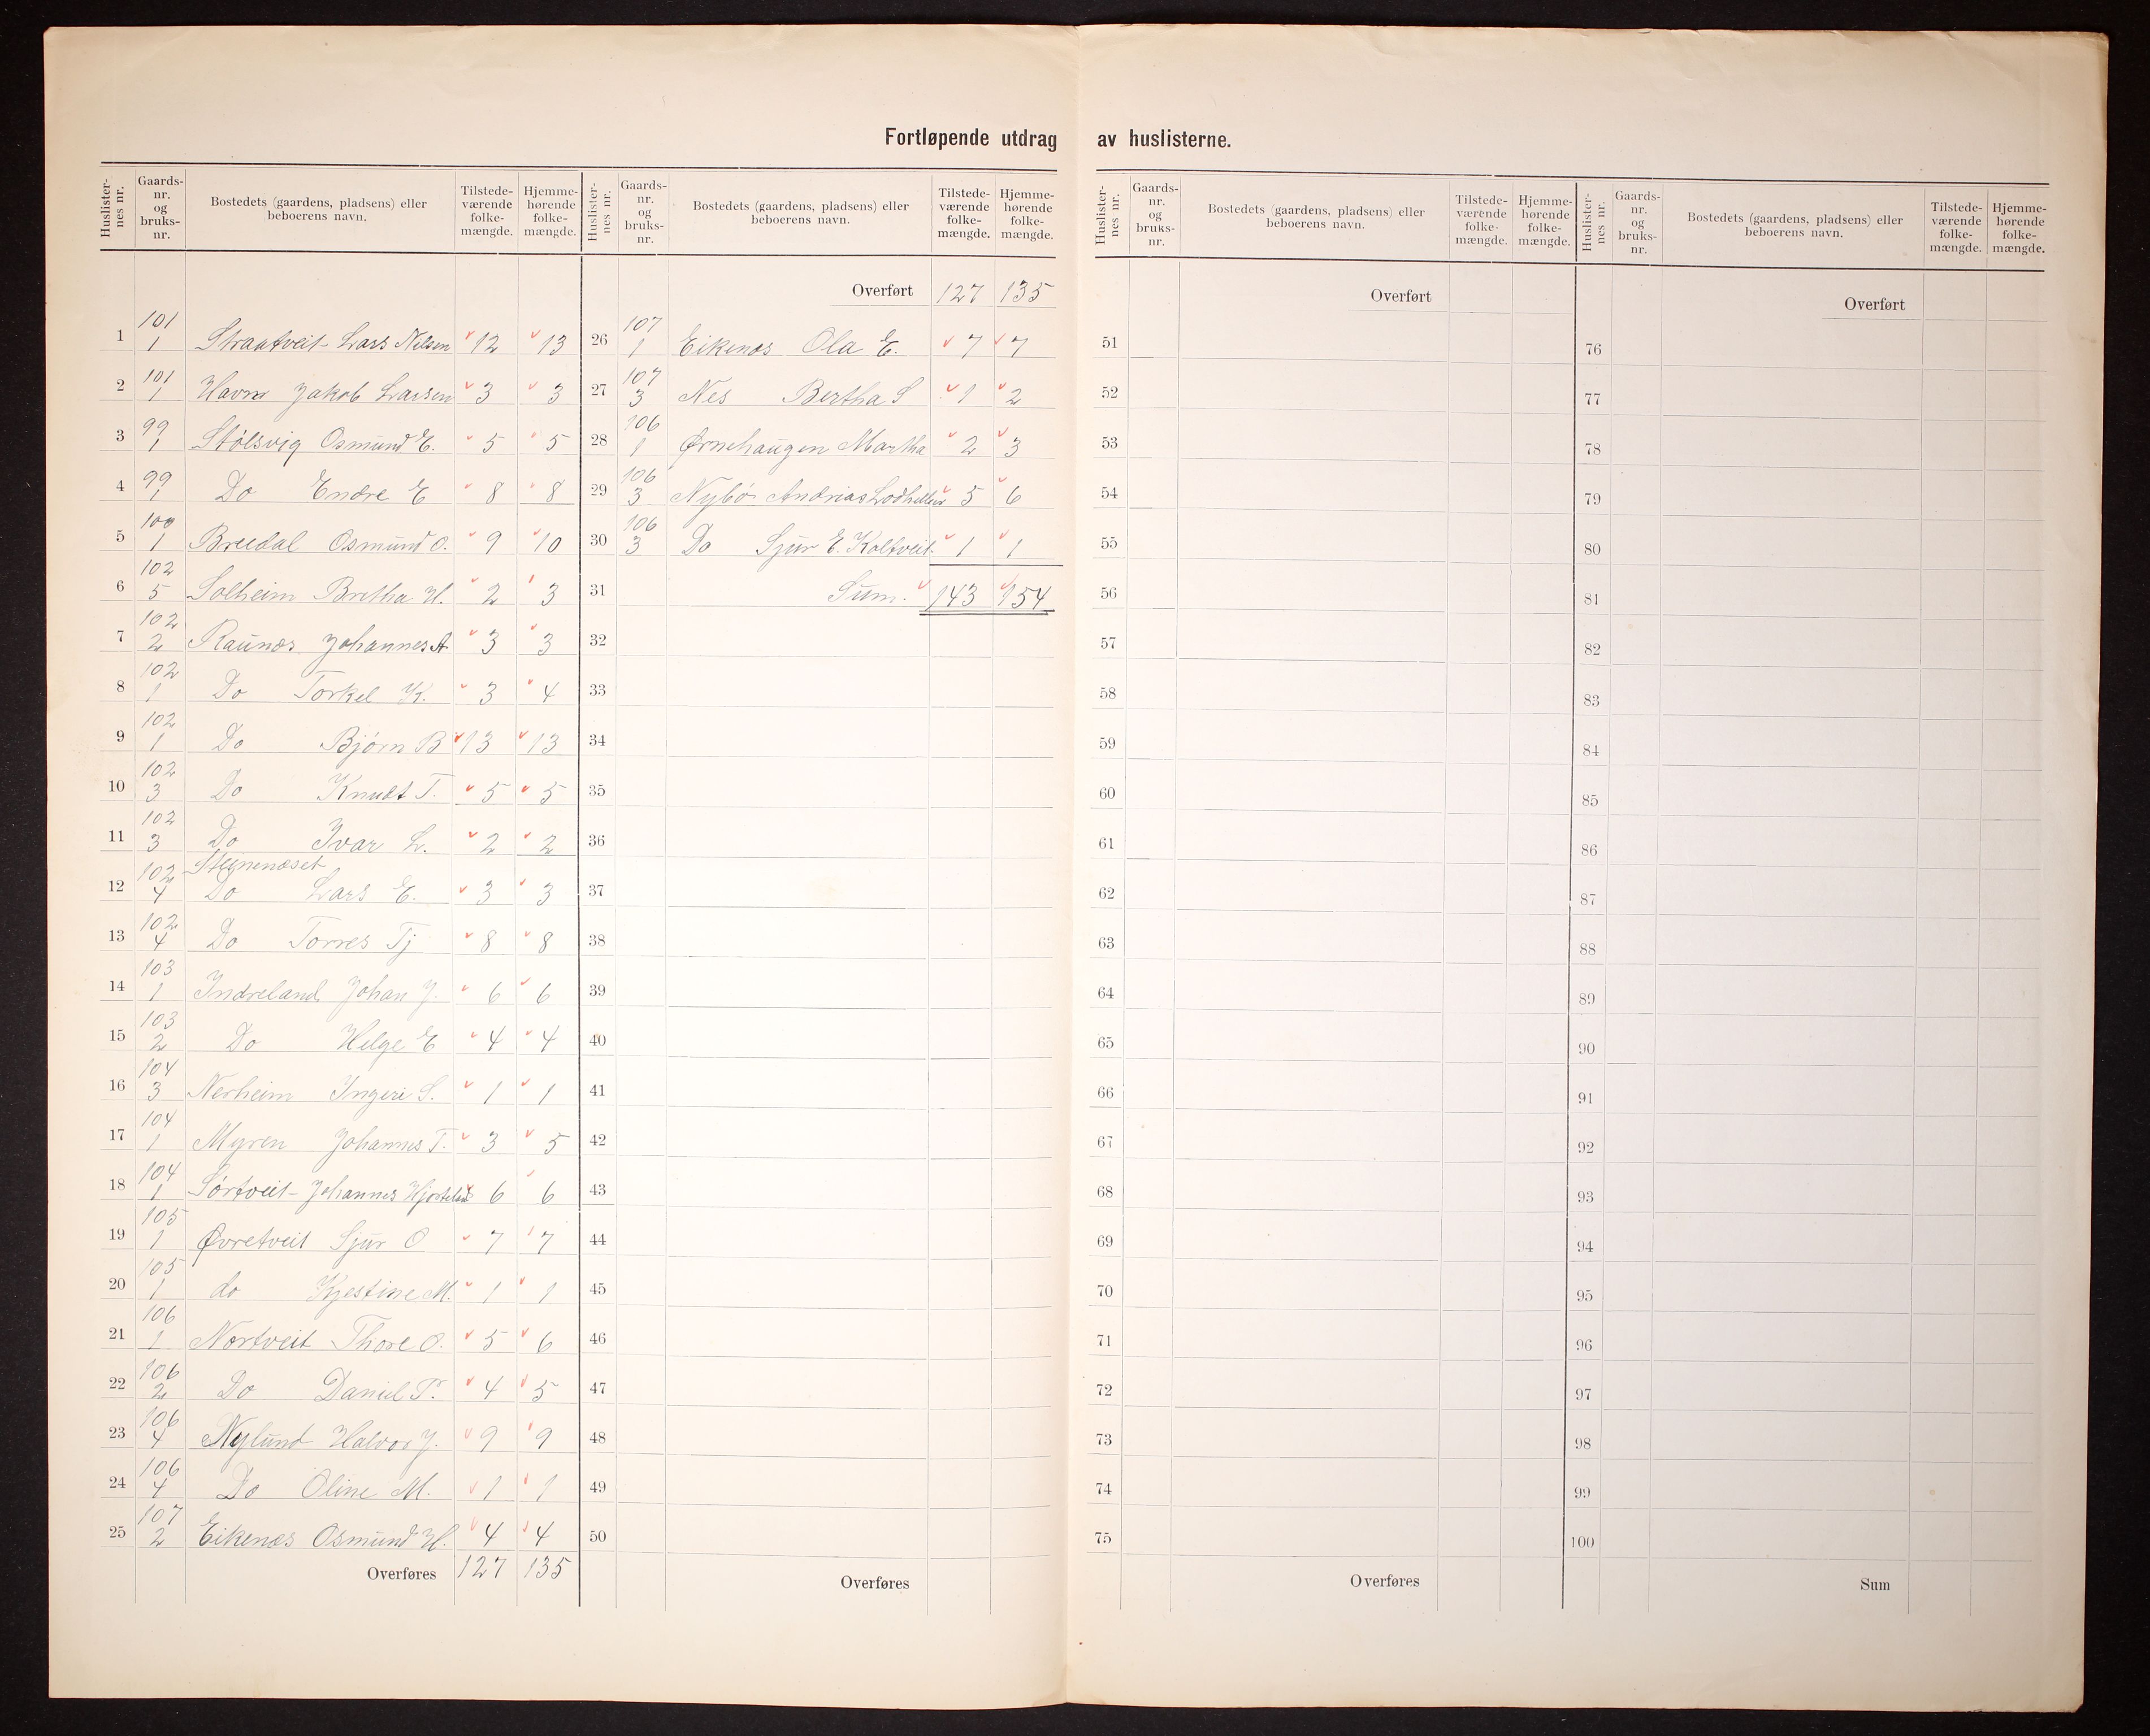 Fortløpende utdrag av huslisterne.
Huslisternes nr. Gaards-nr. og bruks-nr. Bostedets (gaardens, pladsens) eller beboerens navn. Tilstedeværende folkemængde. Hjemmehørende folkemængde.
1 101 1 Straatveit - Lars Nilsen 12 13
2 101 1 Havn Jakob Larsen 3 3
3 99 1 Stølsvig Osmund E. 5 5
4 99 1 Do Endre E 8 8
5 100 1 Breidal Osmund O. 9 10
6 102 5 Solheim Bretha H. 2 3
7 102 2 Raunæs Johannes A 3 3
8 102 1 Do Torkel K. 3 4
9 102 1 Do Bjørn B 13 13
10 102 3 Do Knudt T. 5 5
11 102 3 Do Ivar L. 2 2
Stegnenæset
12 102 4 Do Lars E. 3 3
13 102 4 Do Torres Tj 8 8
14 103 1 Indreland Johan J. 6 6
15 103 2 Do Helge E 4 4
16 104 3 Nerheim Ingeri S. 1 1
17 104 1 Myren Johannes T. 3 5
18 104 1 Sørtveit - Johannes Hjorteland 6 6
19 105 1 Øvretveit Sjur O 7 7
20 105 1 do Kjestine M. 1 1
21 106 1 Nortveit Thore O. 5 6
22 106 2 Do Daniel P. 4 5
23 106 4 Nylund Halvor J. 9 9
24 106 4 Do Oline M. 1 1
25 107 2 Eikenæs Osmund H. 4 4
Overføres 127 135
Huslisternes nr. Gaards-nr. og bruks-nr. Bostedets (gaardens, pladsens) eller beboerens navn. Tilstedeværende folkemængde. Hjemmehørende folkemængde.
Overført 127 135
26 107 1 Eikenæs Ola E. 7 7
27 107 3 Nes Bertha S 1 2
28 106 1 Ørnehaugen Martha 2 3
29 106 3 Nybø Andrias 5 6
30 106 3 Do Sjur E. Koltveit 1 1
31 Sum. 143 154
32
33
34
35
36
37
38
39
40
41
42
43
44
45
46
47
48
49
50
Overføres
Huslisternes nr. Gaards-nr. og bruks-nr. Bostedets (gaardens, pladsens) eller beboerens navn. Tilstedeværende folkemængde. Hjemmehørende folkemængde.
Overført
51
52
53
54
55
56
57
58
59
60
61
62
63
64
65
66
67
68
69
70
71
72
73
74
75
Overføres
Huslisternes nr. Gaards-nr. og bruks-nr. Bostedets (gaardens, pladsens) eller beboerens navn. Tilstedeværende folkemængde. Hjemmehørende folkemængde.
Overført
76
77
78
79
80
81
82
83
84
85
86
87
88
89
90
91
92
93
94
95
96
97
98
99
100
Sum